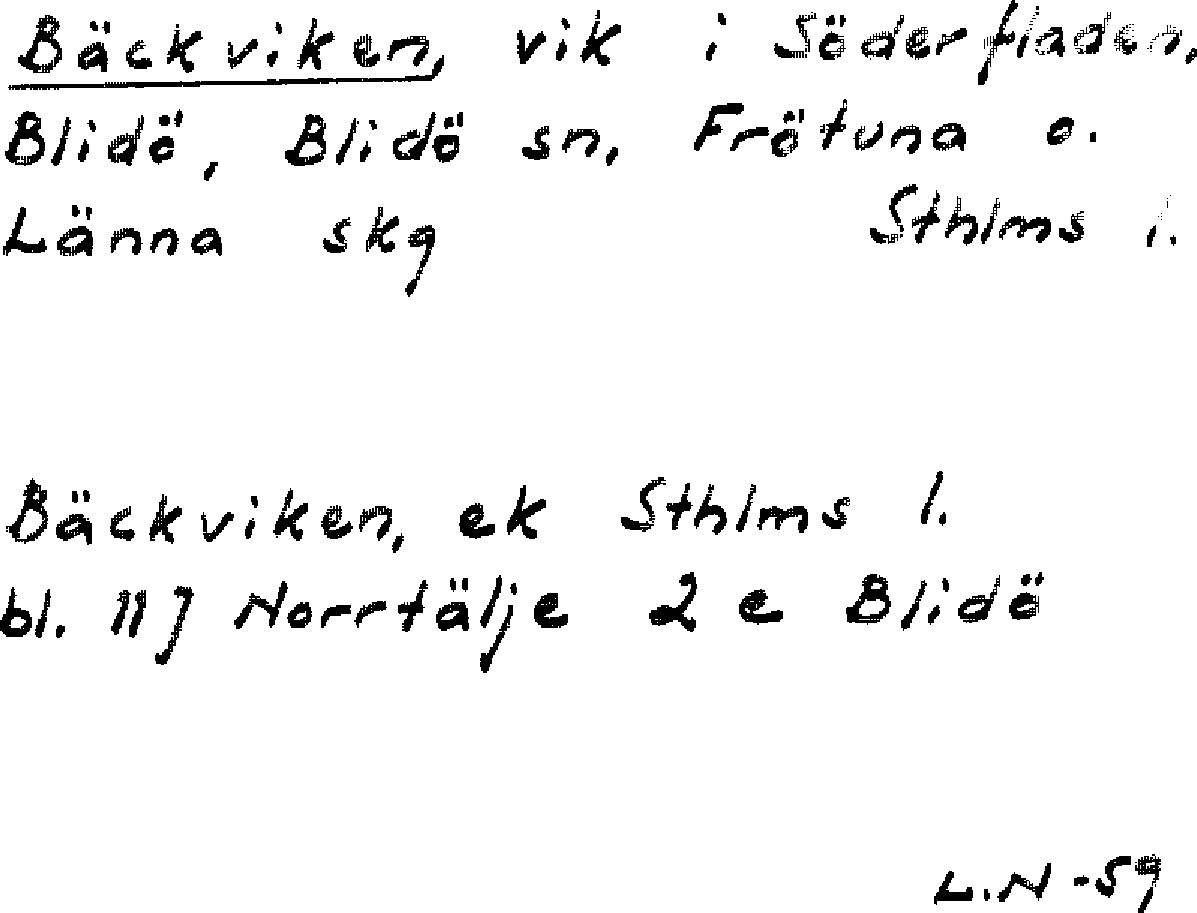 Bäckviken, vik i Söderfladen,
Blidö, Blidö sn, Frötuna o.
Länna skg Sthlms l.
Bäckviken, ek Sthlms l.
bl. 11J Norrtälje 2 e Blidö
L.N -59